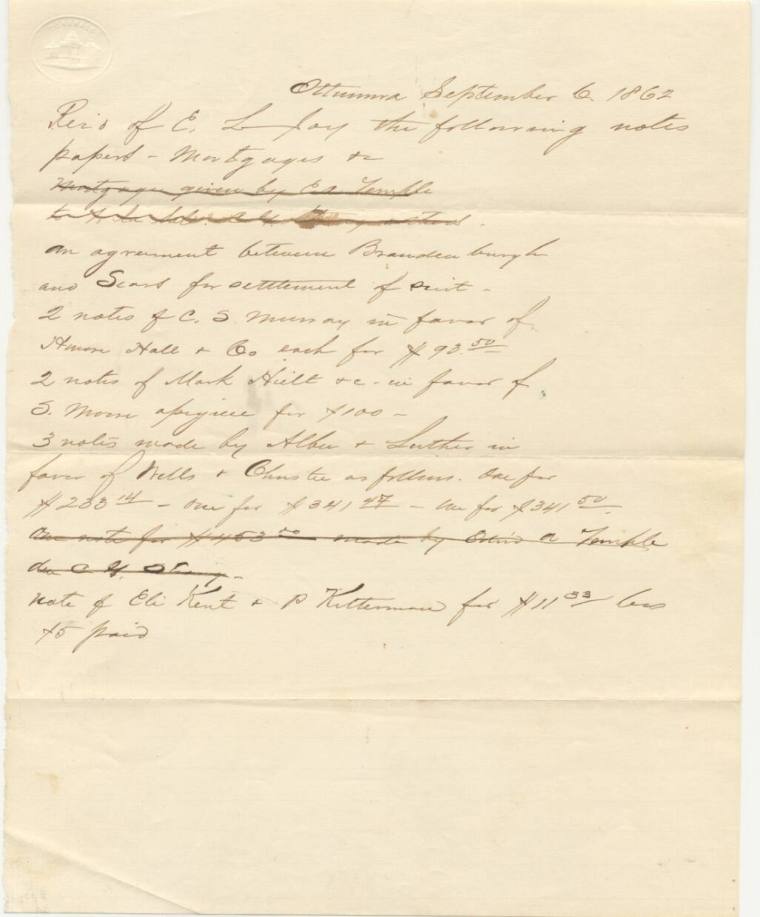 Ottumwa September 6. 1862
Rec'd of E. L. Joy the following notes
papers - Mortgages &c
Mortgage given by E A Temple
to
an agreement between Brandenburgh
and Sears for settlement of suit -
2 notes of C. S. Murray in favor of
Hall & Co each for $93 50
2 notes of Mark Hiilt &c - in favor of
S. Moore apiece for $100 -
3 notes made by Alber & Luther in
favor of Wells & Christie as follows. One for
$233 14 - One for $341 47 - One for $341 50
One note for $453 00 made by A Temple
note of Eli Kent & P Kitterman for $11 33 less
$5 paid